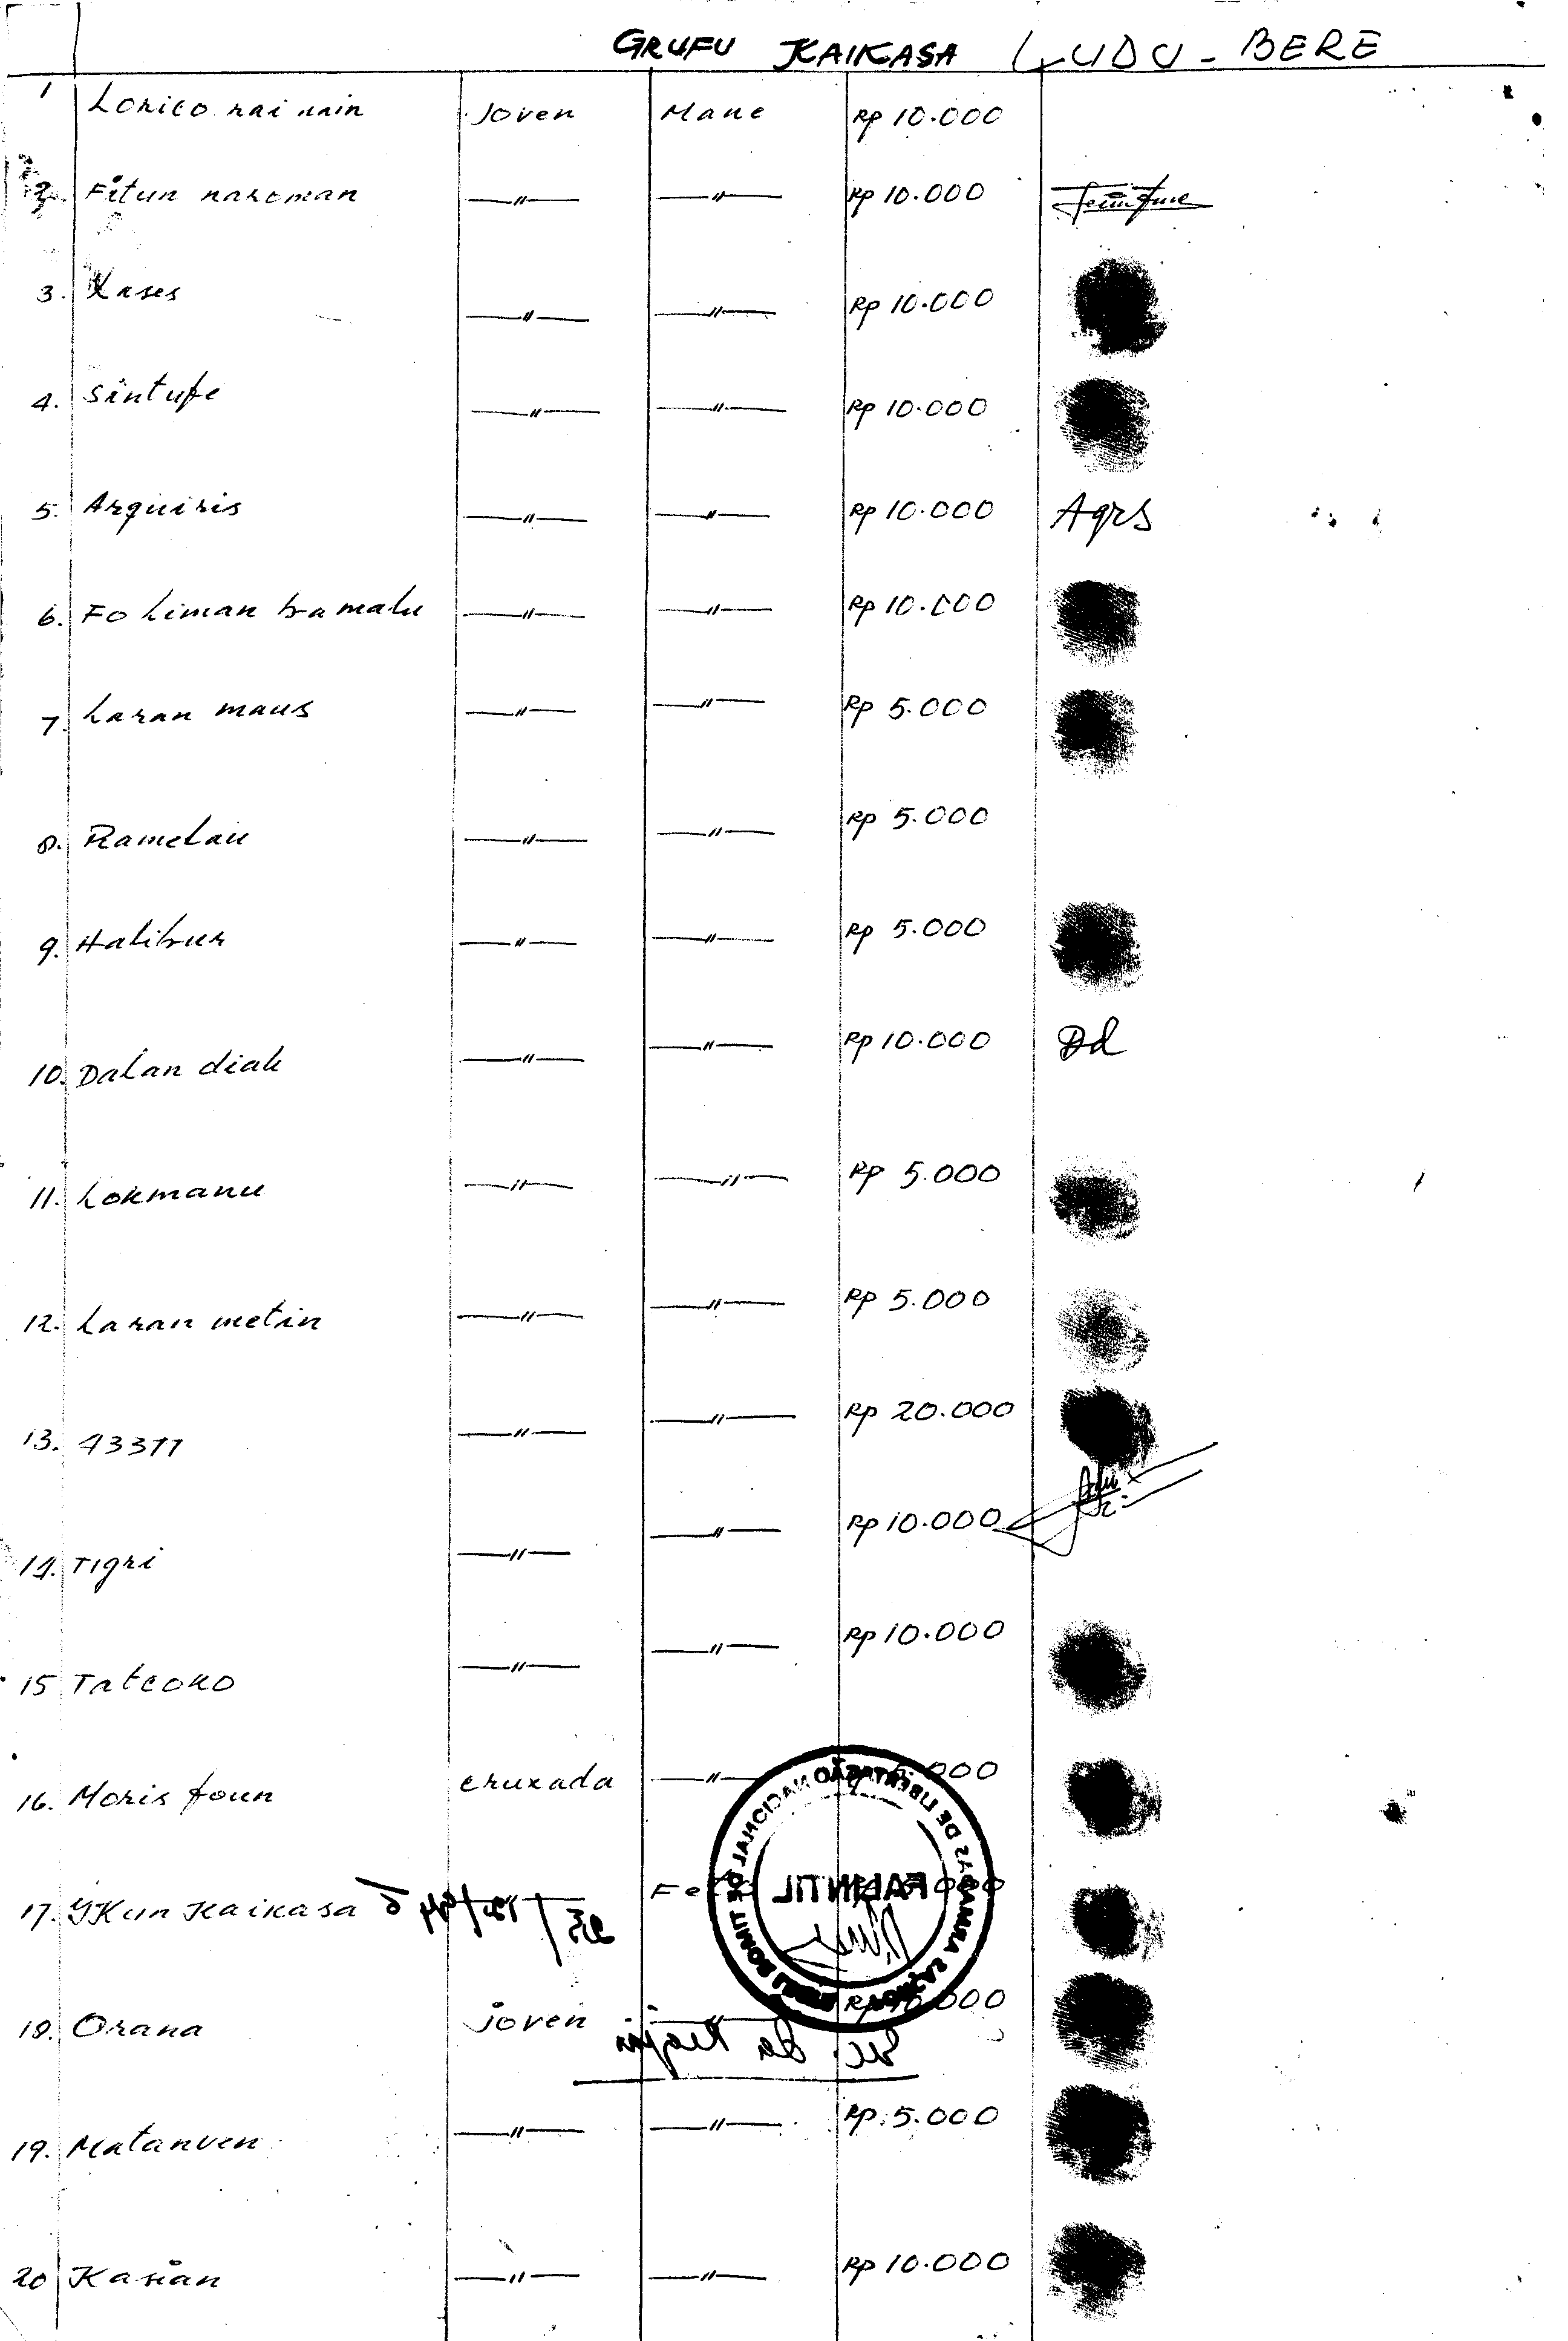 GRUFU KAIKASA LUDU-BERE
1 Lorico rai nain Joven Mane Rp 10.000
2. Fitun naroman —"— —"— Rp 10.000
3. Kases —"— —"— Rp 10.000
4. Sintufe —"— —"— Rp 10.000
5. Arquiris —"— —"— Rp 10.000 Aqrs
6. Fo liman ba malu —"— —"— Rp 10.000
7. Laran maus —"— —"— Rp 5.000
8. Ramelau —"— —"— Rp 5.000
9. Halibur —"— —"— Rp 5.000
10. Dalan diak —"— —"— Rp 10.000 Dd
11. Lokmanu —"— —"— Rp 5.000
12. Laran metin —"— —"— Rp 5.000
13. —"— —"— Rp 20.000
14. Tigri —"— —"— Rp 10.000
15 Tatcoko —"— —"— Rp 10.000
16. Moris foun cruxada —"— .000
17. Kaikasa
FALINTIL
18. Orana joven Rp 10.000
Sec. da Região
19. Matanven —"— —"— Rp. 5.000
20 Kasian —"— —"— Rp 10.000